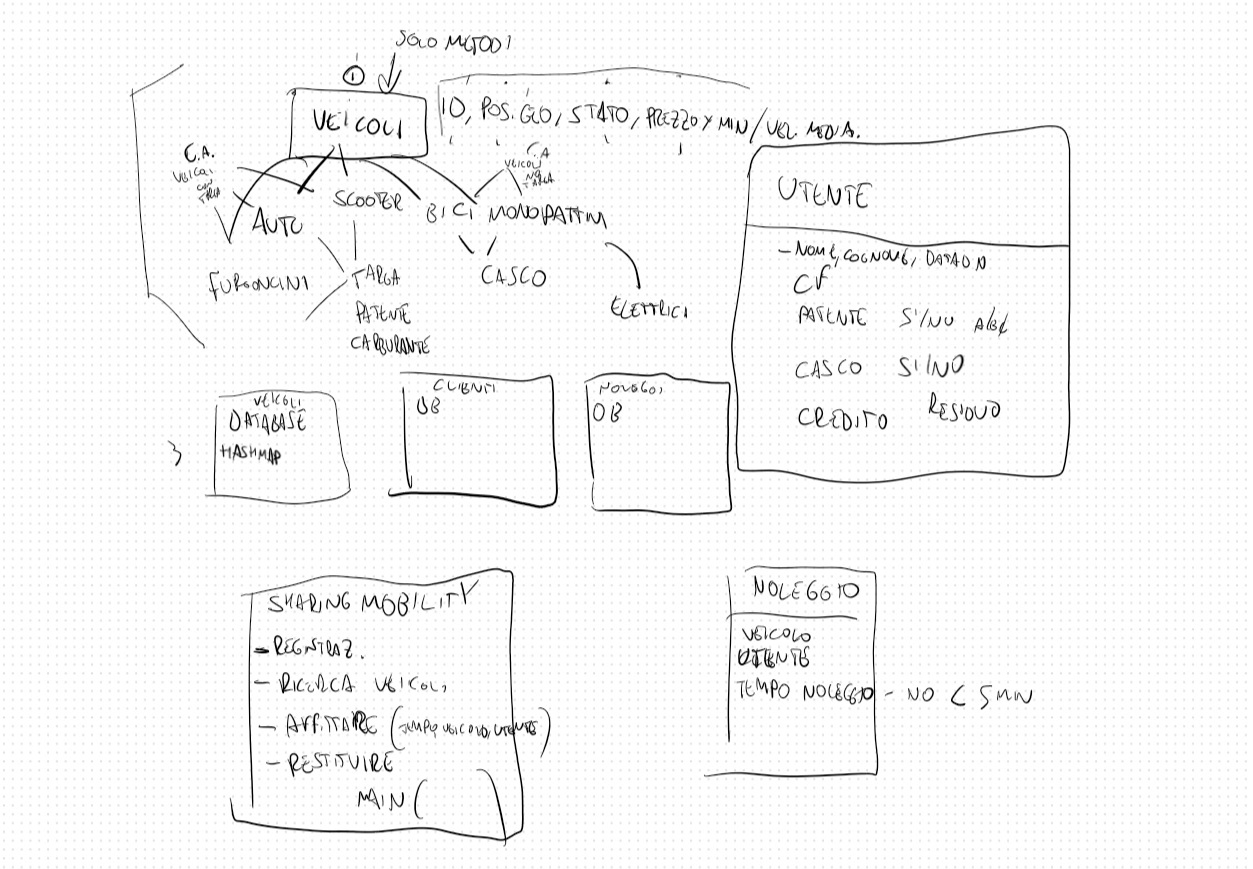 SOLO METODI
1
VEICOLI
ID, POS. GEO, STATO, PREZZO X MIN / VEL. MEDIA.
C.A.
VEICOLI
CON
TARGA
C.A
VEICOLI
NO
TARGA
AUTO
SCOOTER
BICI
MONOPATTINI
FURGONCINI
TARGA
PATENTE
CARBURANTE
CASCO
ELETTRICI
UTENTE
- NOME, COGNOME, DATA DI N
CF
PATENTE SI/NO A/B/C
CASCO SI/NO
CREDITO RESIDUO
3
VEICOLI
DATABASE
HASHMAP
CLIENTI
DB
NOLEGGI
DB
SHARING MOBILITY
- REGISTRAZ.
- RICERCA VEICOLI
- AFFITTARE (TEMPO, VEICOLO, UTENTE)
- RESTITUIRE
MAIN ( )
NOLEGGIO
VEICOLO
UTENTE
TEMPO NOLEGGIO - NO < 5 MIN